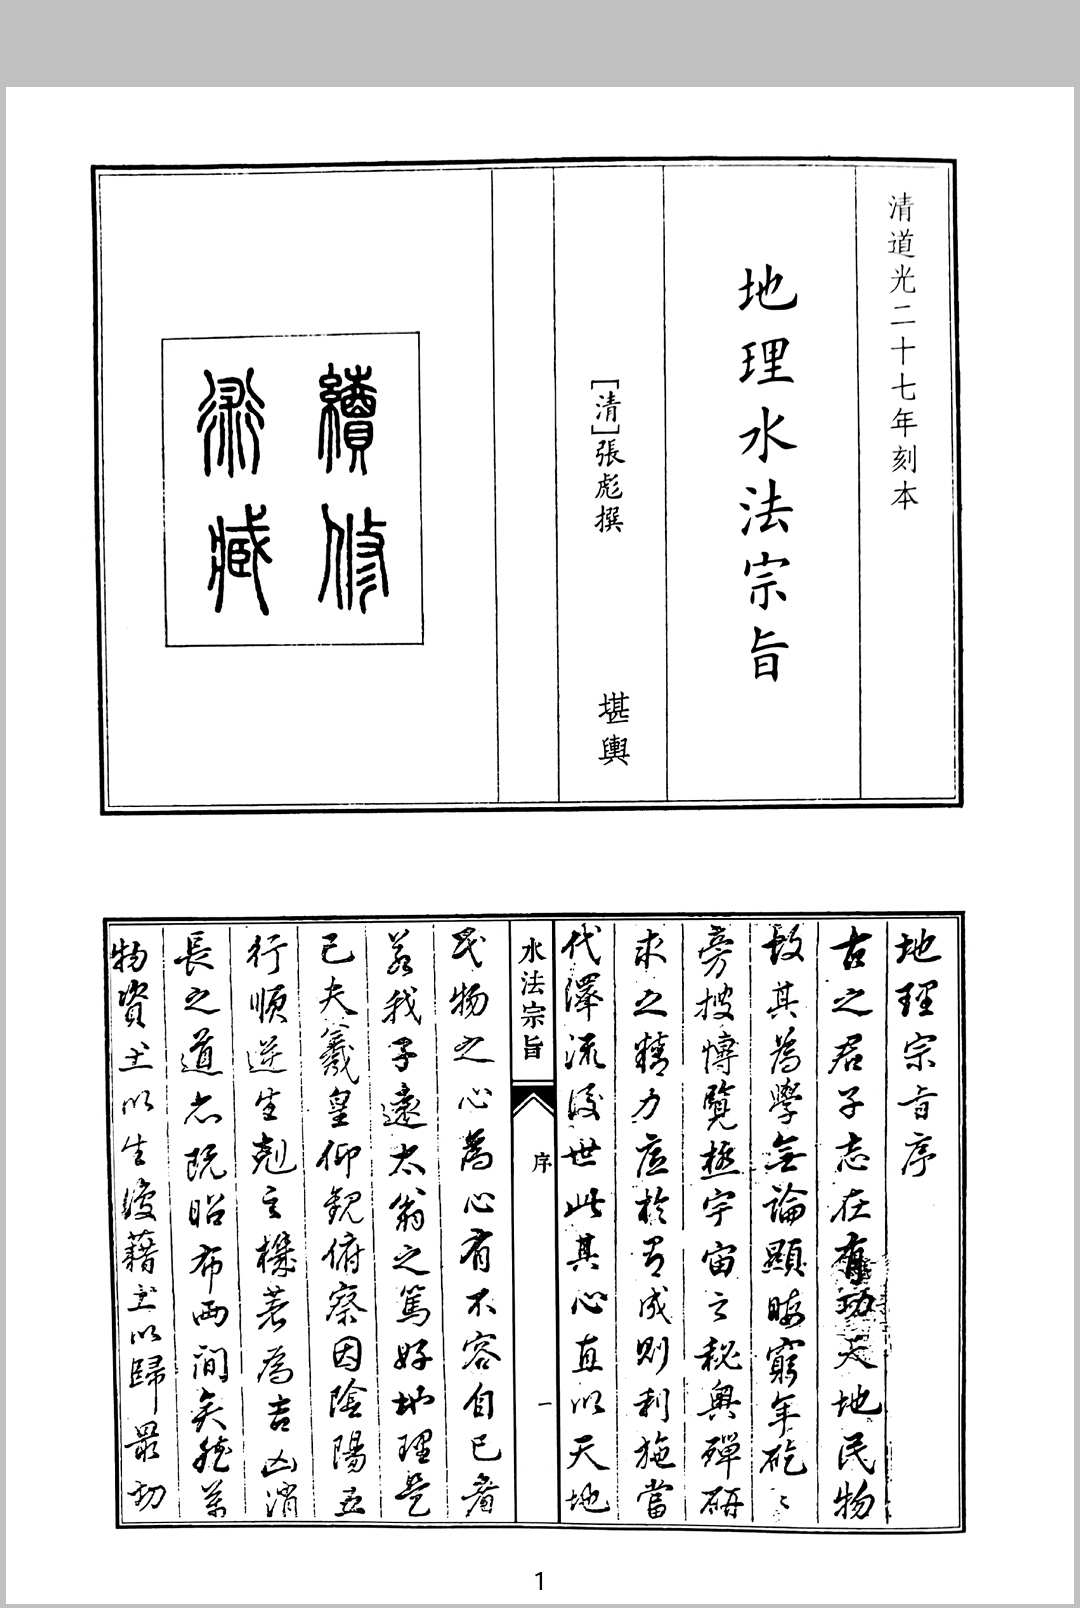 清道光二十七年刻本
地理水法宗旨
[清]張彪撰
堪輿
續修
術藏
地理宗旨序
古之君子志在有功天地民物
故其為學無論顯晦窮年矻〻
旁搜博覽極宇宙之秘輿殫研
求之精力底於有成則利施當
代澤流後世此其心直以天地
水法宗旨
序
一
民物之心為心有不容自已者
若我子遠太翁之篤好地理是
已夫羲皇仰觀俯察因陰陽五
行順逆生剋之機著為吉凶消
長之道志既昭布兩間矣然萬
物資土以生復藉土以歸最切
1